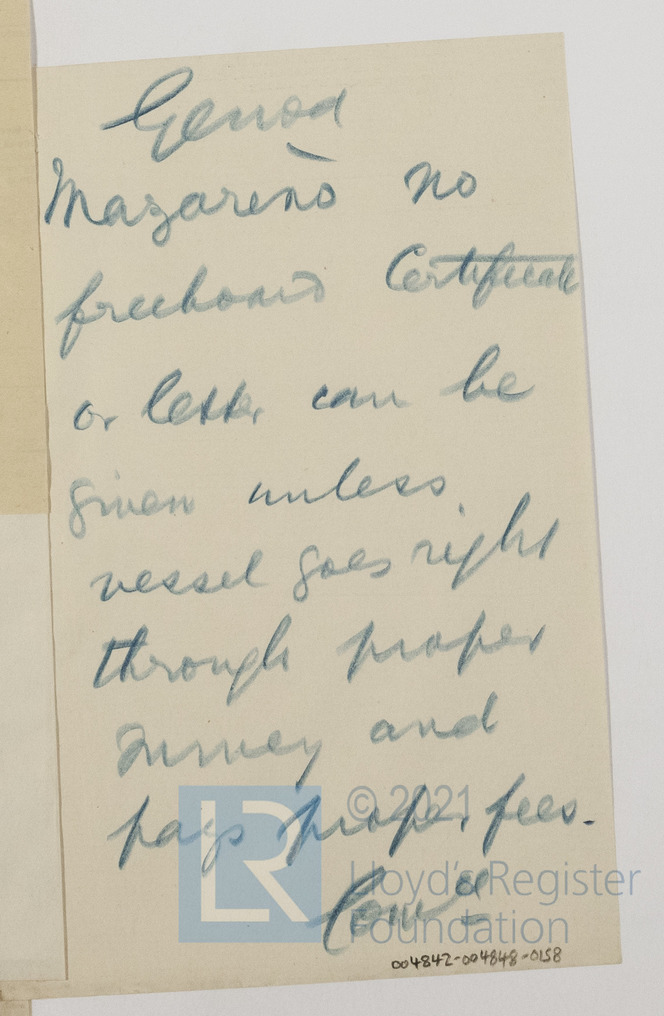 Genoa
Mazareno no
freeboard Certificate
or letter can be
given unless
vessel goes right
through proper
survey and
pays proper fees.
LR
© 2021
Lloyd's Register
Foundation
004842-004848-0158